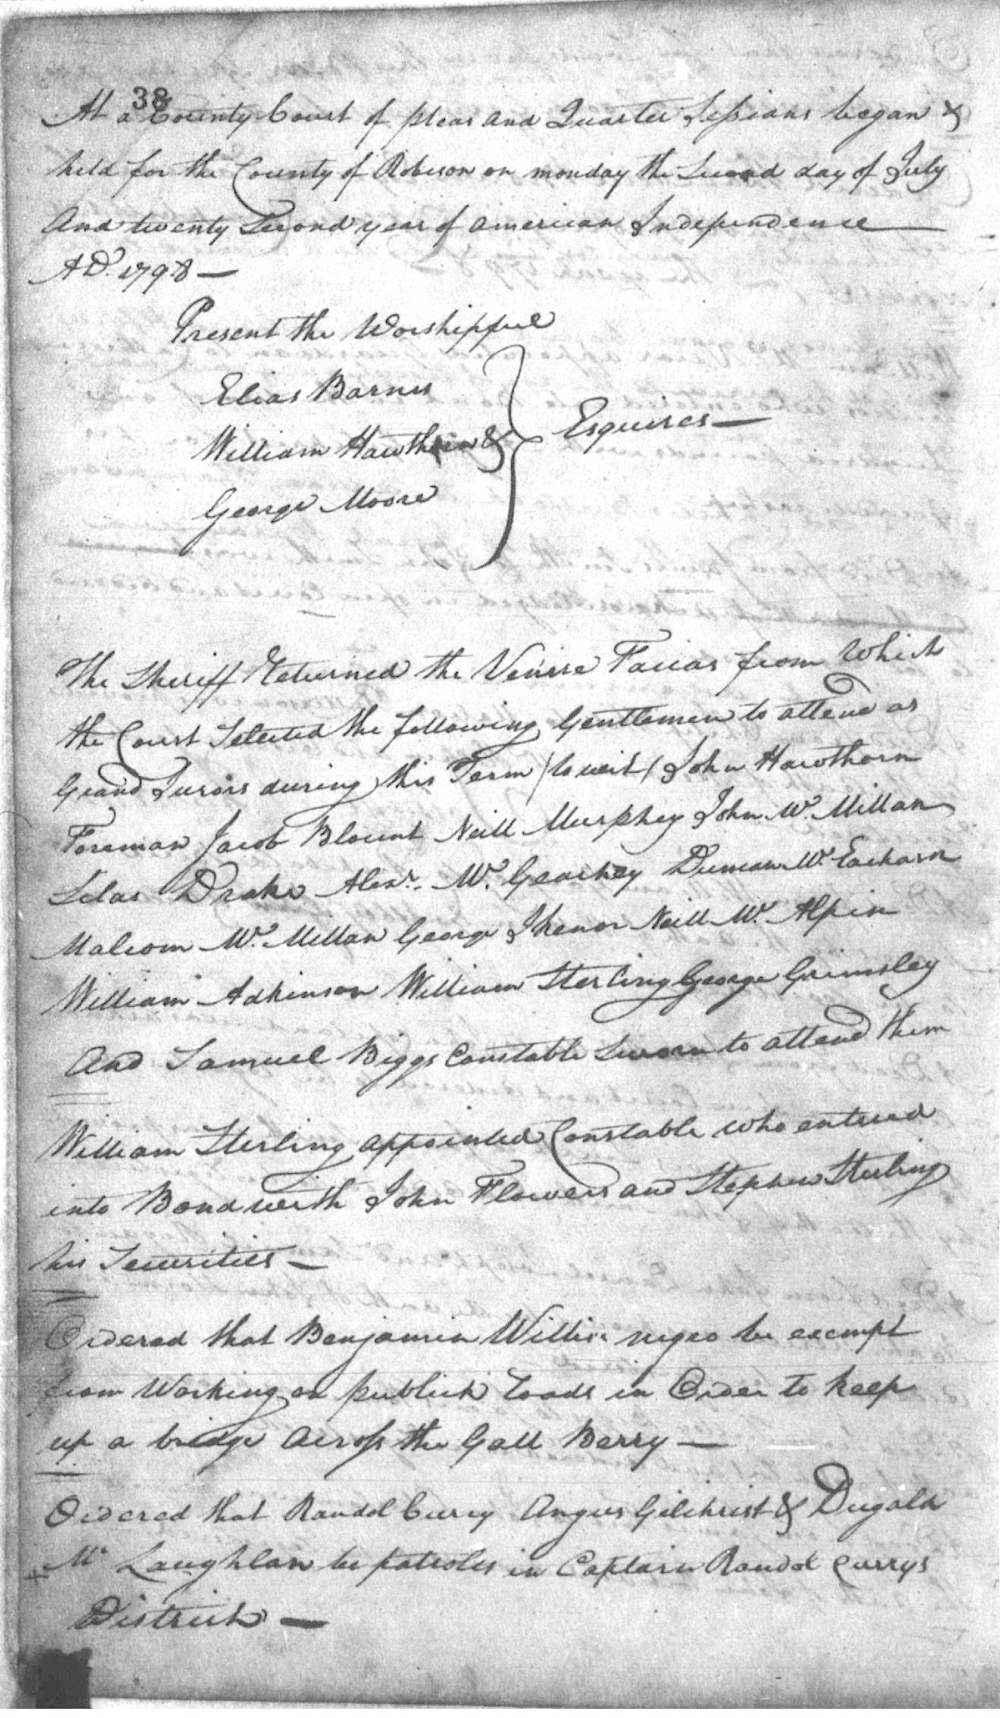 38
At a County Court of pleas and Quarter Sessions began &
held for the County of Robeson on monday the Second day of July
And twenty Second year of american Independence
AD. 1798 —
Present the Worshipful
Elias Barnes
William Hawthorn &
Esquires —
George Moore
The Sheriff Returned the Venire Facias from Which
the Court Selected the following Gentlemen to attend as
Grand Jurors during this Term (to wit) John Hawthorn
Foreman Jacob Blount Neill Murphey John Mc. Millan
Silas Drake Alexr. Mc. Geachey Duncan Mc. Eacharn
Malcom Mc. Millan George Neill Mc. Alpin
William Adkinson William Sterling George Grimsley
And Samuel Biggs Constable Sworn to attend them
William Sterling appointed Constable who entered
into Bond with John Flowers and Stephen Sterling
his Securities —
Ordered that Benjamin Willis negro be exempt
from Working on publick roads in Order to keep
up a bridge across the Gall Berry —
Ordered that Randol Curry Angus Gilchrist & Dugald
+ Mc Laughlan be patroles in Captain Randol Currys
District —